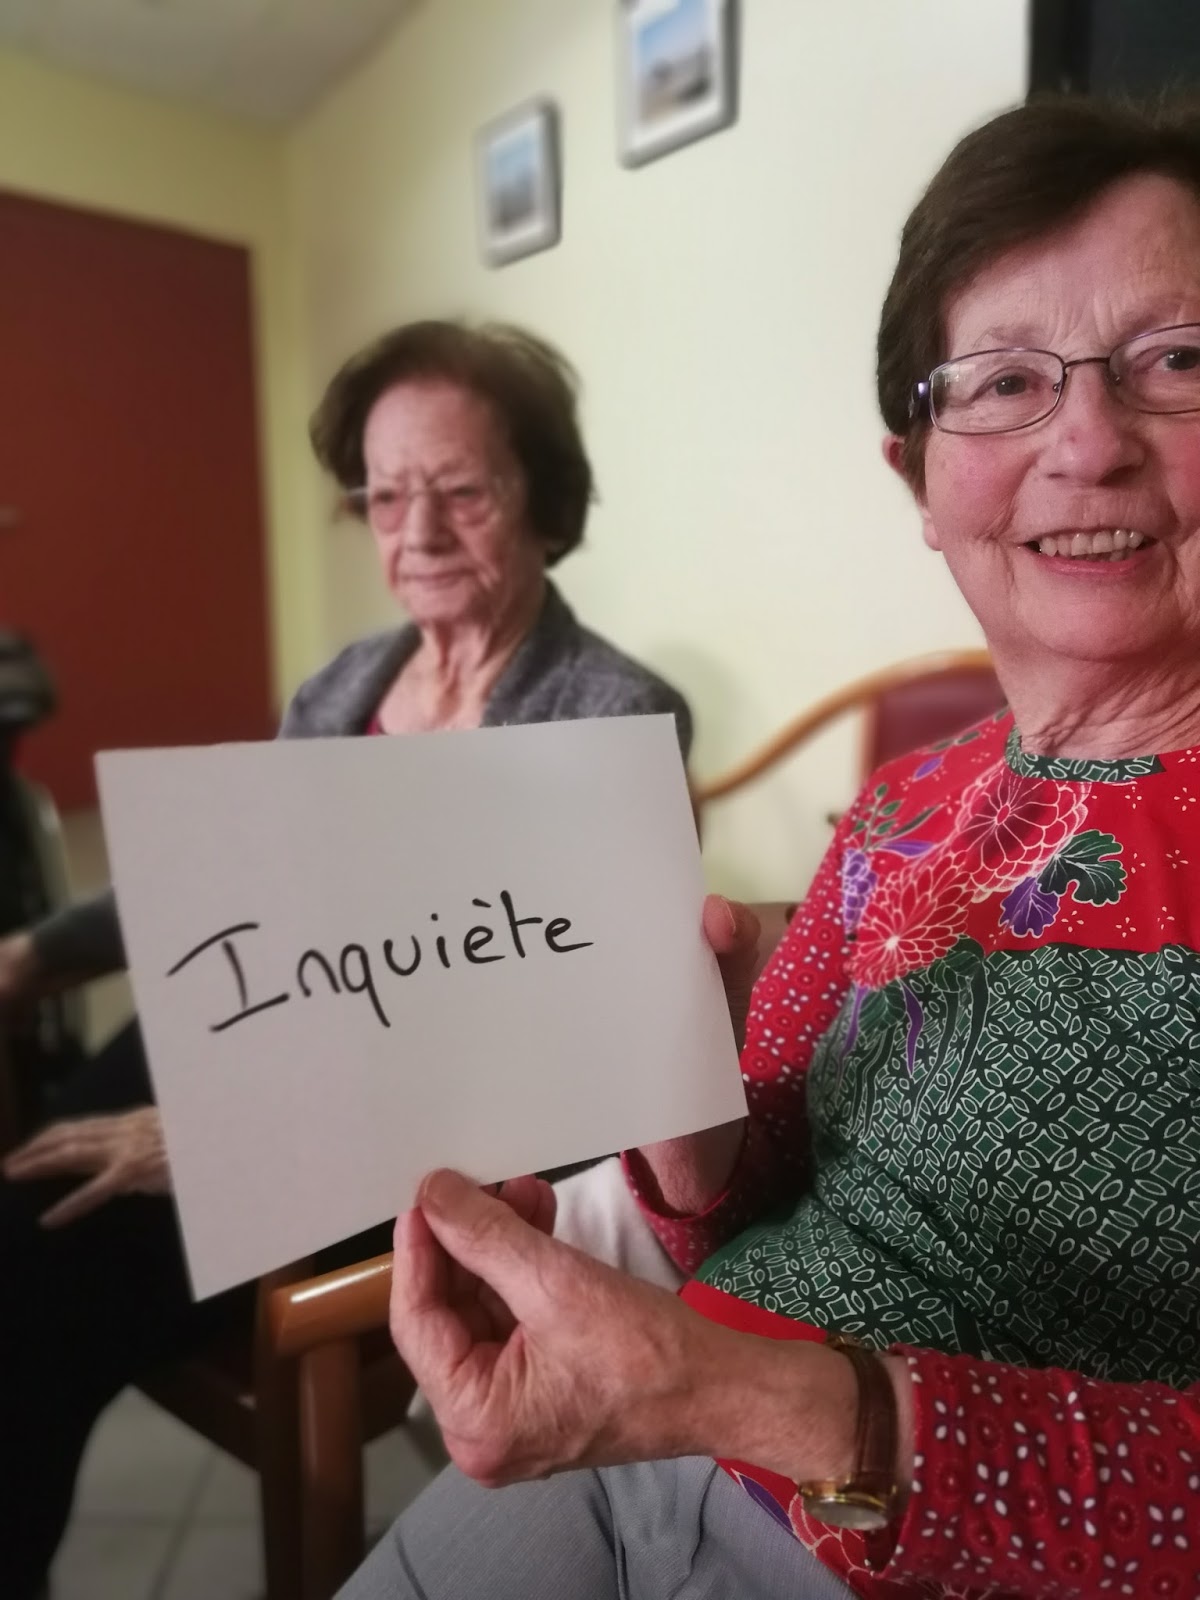 Inquiète